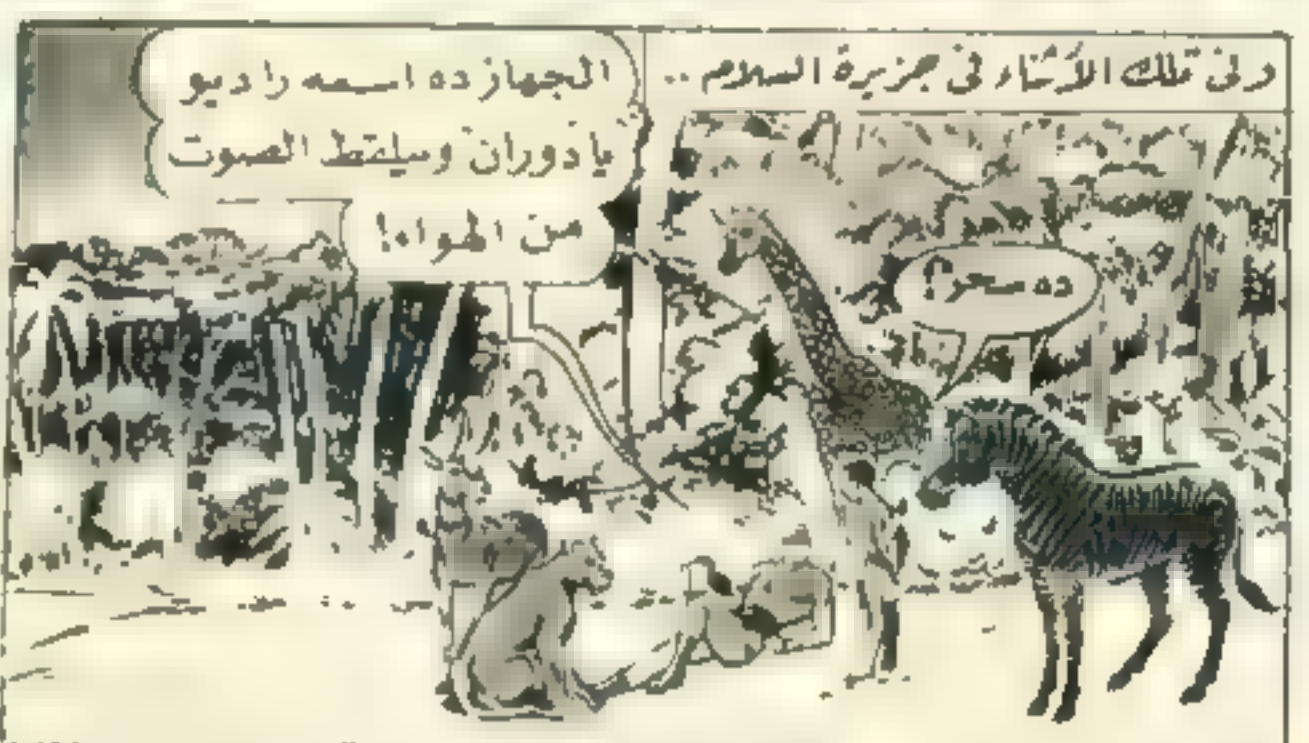 وفى تلك الأثناء فى جزيرة السلام ..
ده سحر؟
الجهاز ده اسمه راديو
يا دوران وبيلقط الصوت
من الهواء!